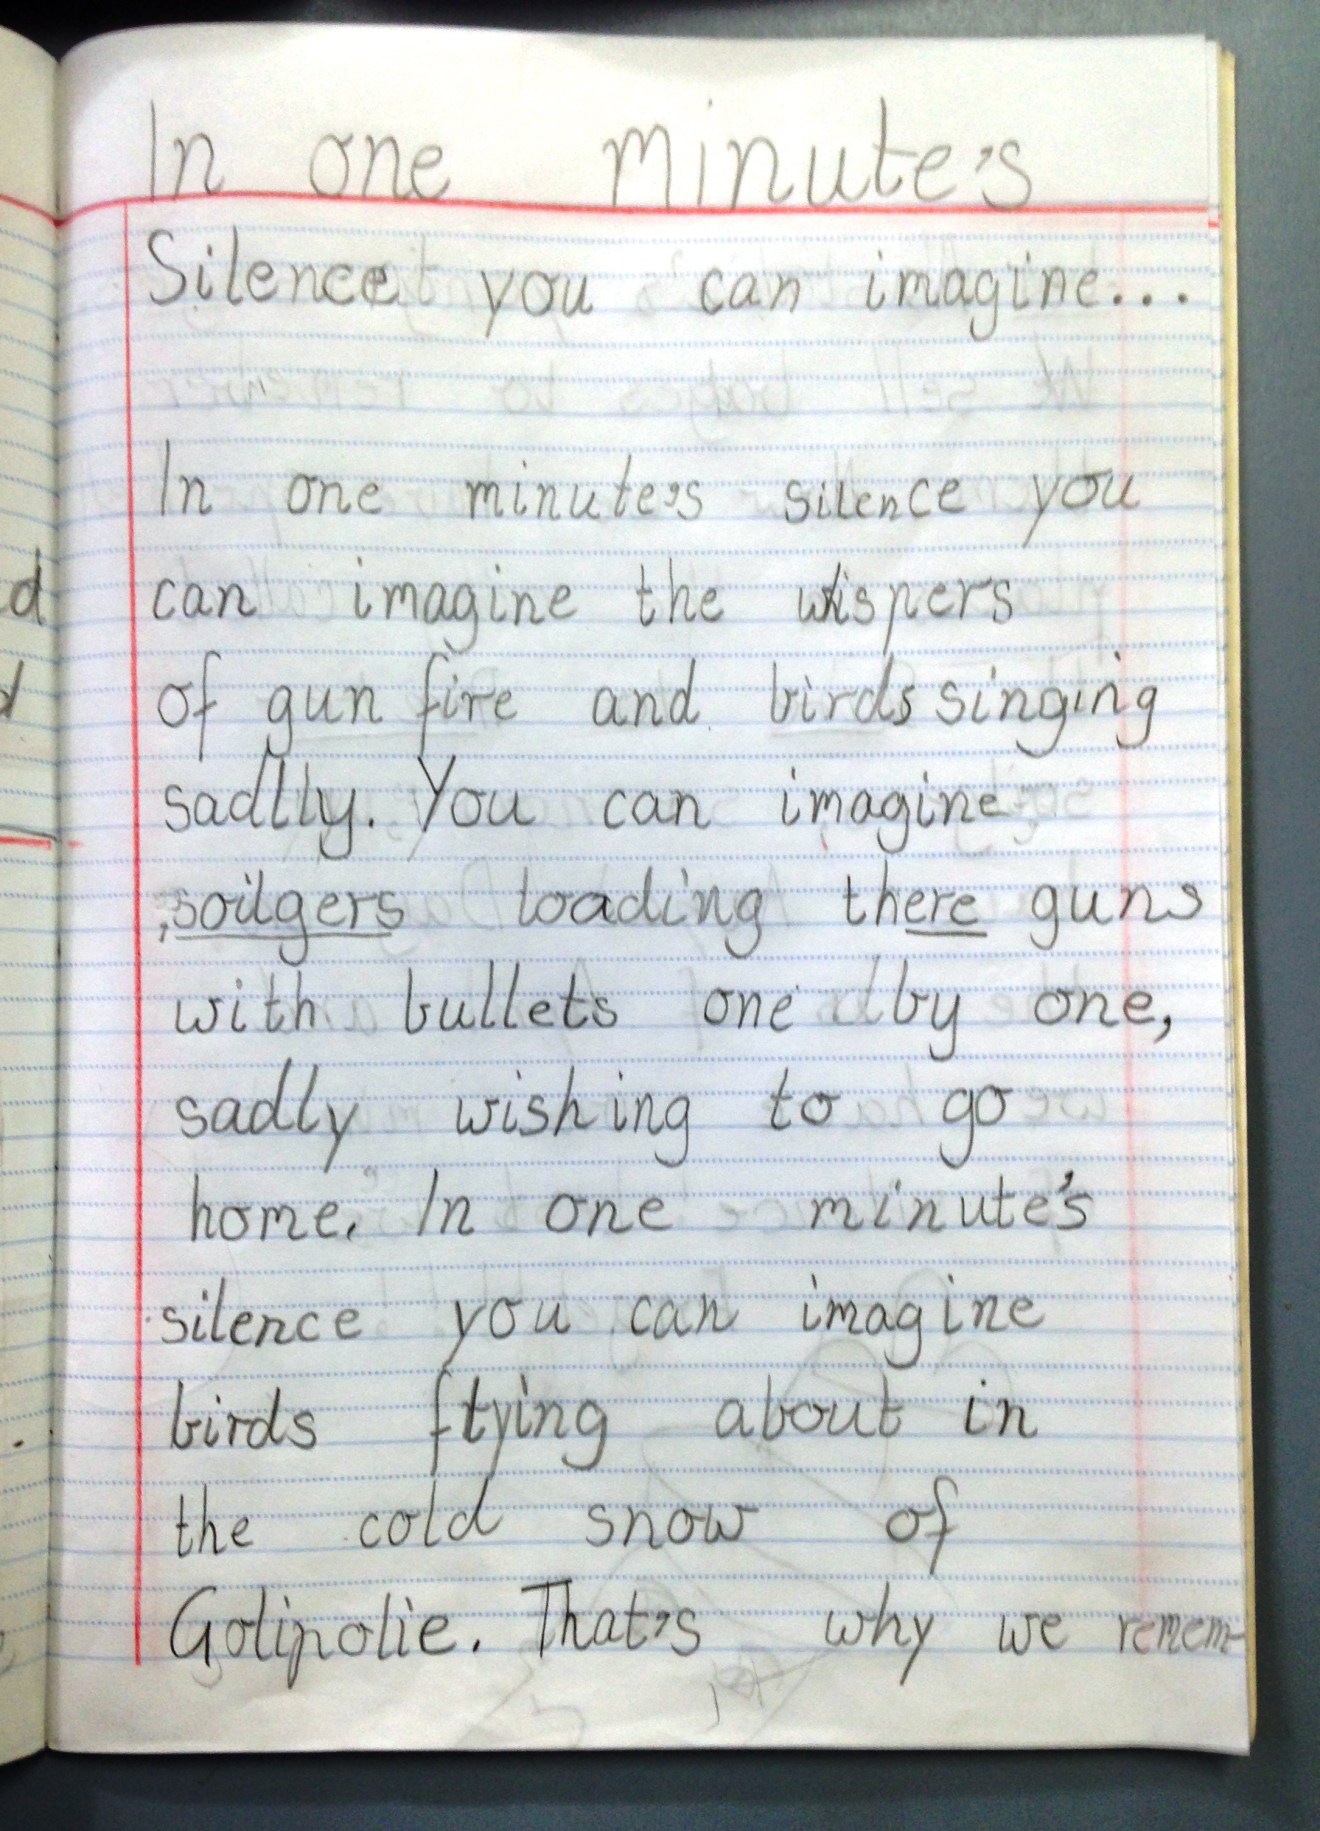 In one minute's
Silence you can imagine...
In one minute's silence you
can imagine the whispers
of gun fire and birds singing
sadlly. You can imagine
soilgers loading there guns
with bullets one by one,
sadly wishing to go
home. In one minute's
silence you can imagine
birds flying about in
the cold snow of
Golipolie. That's why we remem-